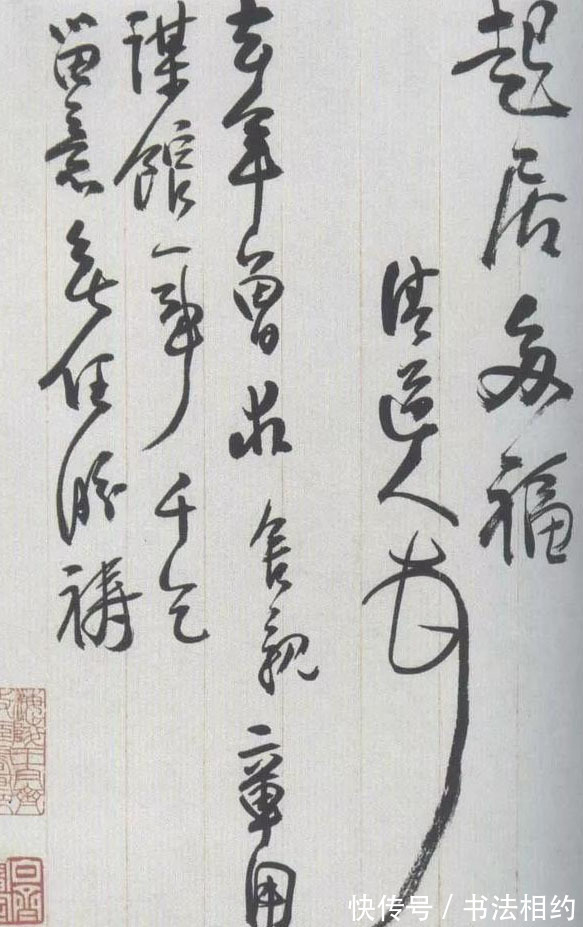 起居多福
清道人
去年曾求舍親章用
謀館一事千乞
留意無任盼禱
快传号/书法相约